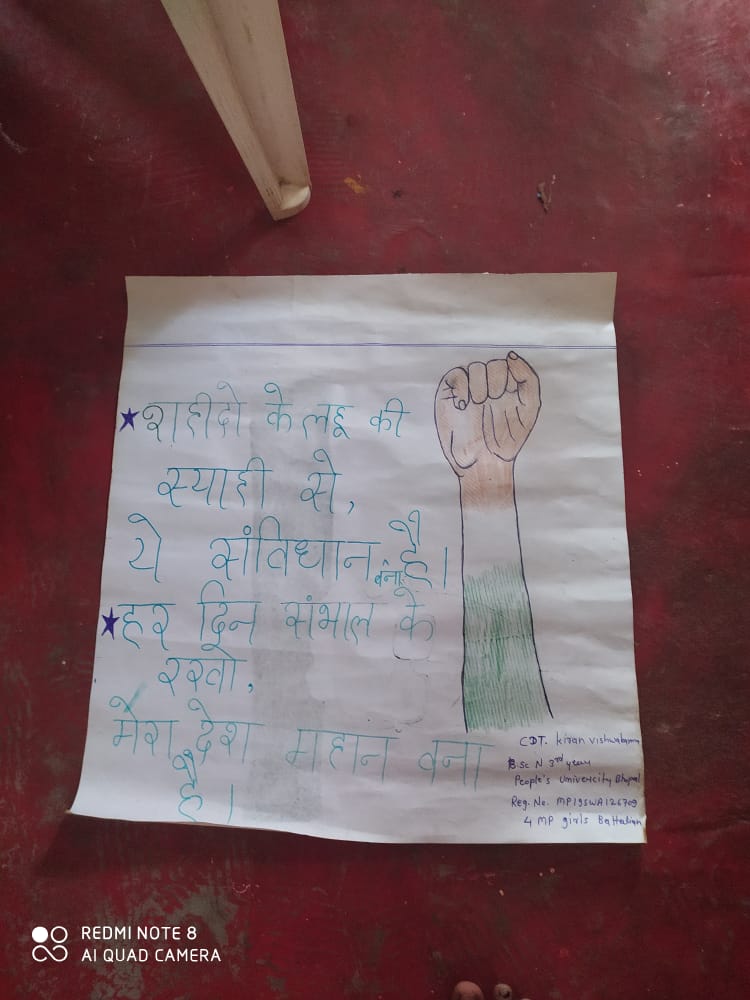 ★ शहीदो के लहू की
स्याही से,
ये संविधान बना है।
★ हर दिन संभाल के
रखो,
मेरा देश महान बना
है।
CDT. kiran vishwakarma
B.Sc N 3rd year
People's Univercity Bhopal
Reg. No. MP19SWA126709
4 MP girls Battalion
REDMI NOTE 8
AI QUAD CAMERA